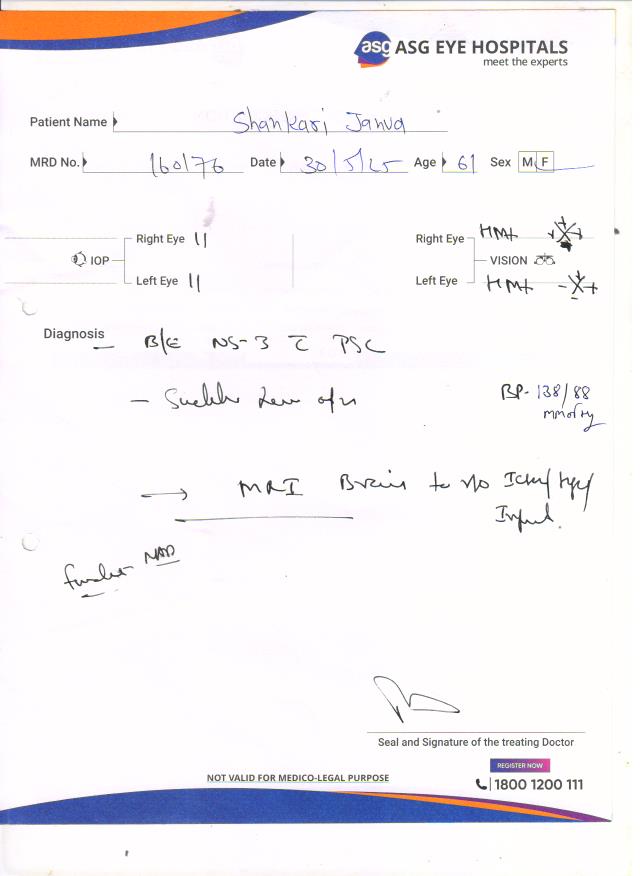 asg ASG EYE HOSPITALS
meet the experts
Patient Name Shankari Janva
MRD No. 160176 Date 30/5/25 Age 61 Sex M F
Right Eye 11
IOP
Left Eye 11
Right Eye HM+
VISION
Left Eye HM+
Diagnosis B/E NS-3 c̄ PSC
BP- 138/88
mmofHg
→ MRI Brain to r/o
NAD
Seal and Signature of the treating Doctor
REGISTER NOW
NOT VALID FOR MEDICO-LEGAL PURPOSE
1800 1200 111